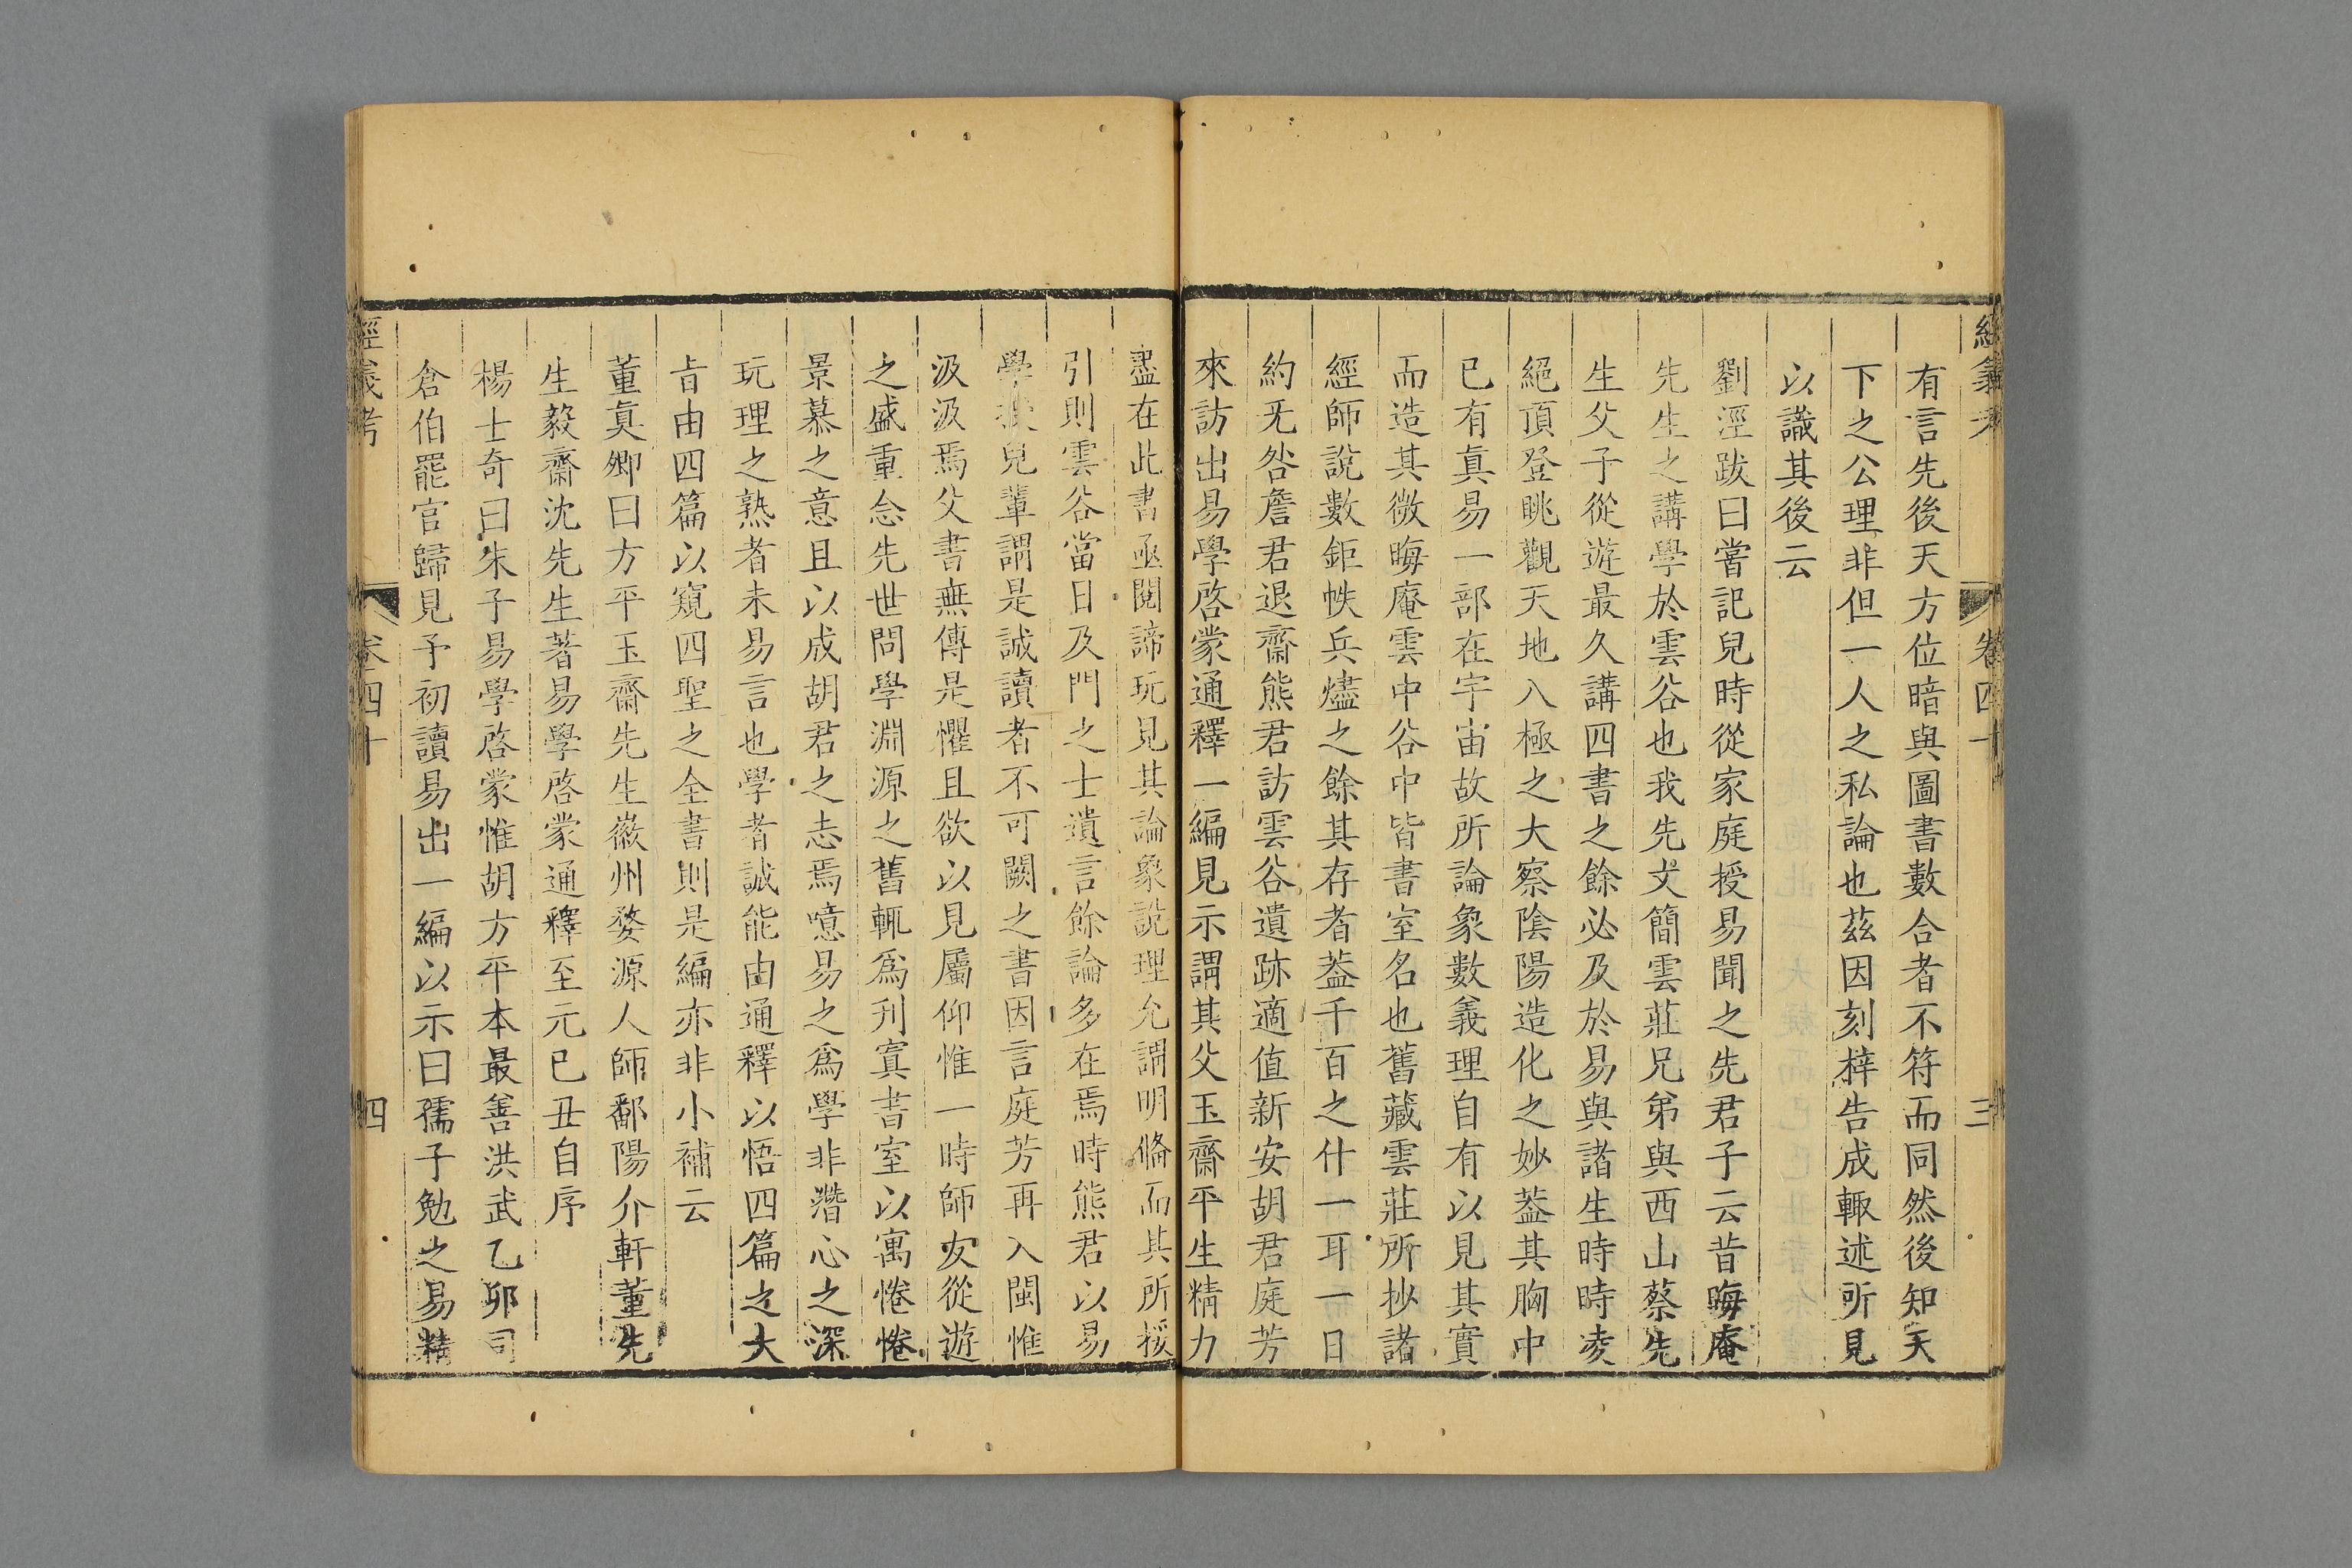 經義考 卷四十 三
有言先後天方位暗與圖書數合者不符而同然後知天
下之公理非但一人之私論也茲因刻梓告成輙述所見
以識其後云
劉涇跋曰嘗記兒時從家庭授易聞之先君子云昔晦庵
先生之講學於雲谷也我先文簡雲莊兄弟與西山蔡先
生父子從遊最久講四書之餘必及於易與諸生時時凌
絕頂登眺觀天地八極之大察陰陽造化之妙葢其胸中
已有真易一部在宇宙故所論象數義理自有以見其實
而造其微晦庵雲中谷中皆書室名也舊藏雲莊所抄諸
經師說數鉅帙兵燼之餘其存者葢千百之什一耳一日
約无咎詹君退齋熊君訪雲谷遺跡適值新安胡君庭芳
來訪出易學啓蒙通釋一編見示謂其父玉齋平生精力
盡在此書亟閱諦玩見其論象說理允謂明俻而其所援
引則雲谷當日及門之士遺言餘論多在焉時熊君以易
學授兒輩謂是誠讀者不可闕之書因言庭芳再入閩惟
汲汲焉父書無傳是懼且欲以見屬仰惟一時師友從遊
之盛重念先世問學淵源之舊輒爲刋寘書室以寓惓惓
景慕之意且以成胡君之志焉噫易之爲學非潛心之深
玩理之熟者未易言也學者誠能由通釋以悟四篇之大
旨由四篇以窺四聖之全書則是編亦非小補云
董真卿曰方平玉齋先生徽州婺源人師鄱陽介軒董先
生毅齋沈先生著易學啓蒙通釋至元已丑自序
楊士奇曰朱子易學啓蒙惟胡方平本最善洪武乙卯司
倉伯罷官歸見予初讀易出一編以示曰孺子勉之易精
經義考 卷四十 四